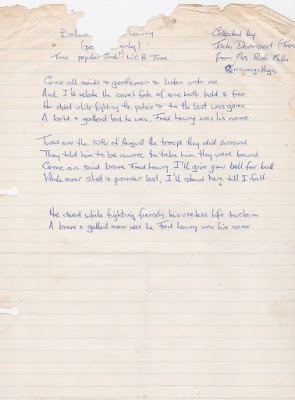 Collected by
(po only) Jacko Davenport
Tune popular Irish? W.C.B Tune from Mrs Ruth Mills
Burrawong
Come all maids & gentlemen & listen unto me
And I'll relate the cruel fate of one both bold & free
He died while fighting the police & to the last was game
A bold & gallant lad he was, Fred Lowry was his name
Twas on the 10th of August the troops they did surround
They told him to be aware to take him they were bound.
Come on said brave Fred Lowry I'll give you ball for ball
While ever shot & powder last, I'll stand here till I fall.
He died while fighting fiercely his useless life to claim
A brave & gallant man was he Fred Lowry was his name